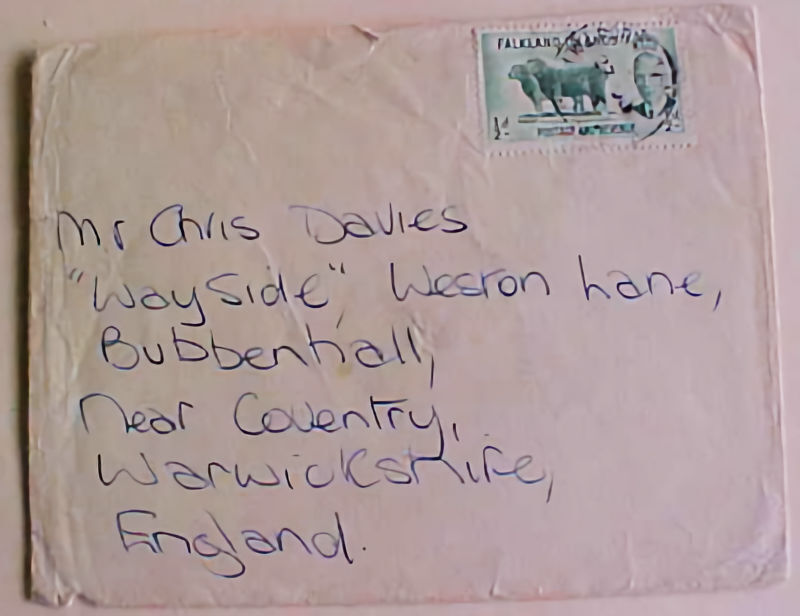 FALKLAND ISLANDS
½d
½d
POSTAGE AND REVENUE
Mr Chris Davies
"WaySide", Weston Lane,
Bubbenhall,
Near Coventry,
Warwickshire,
England.